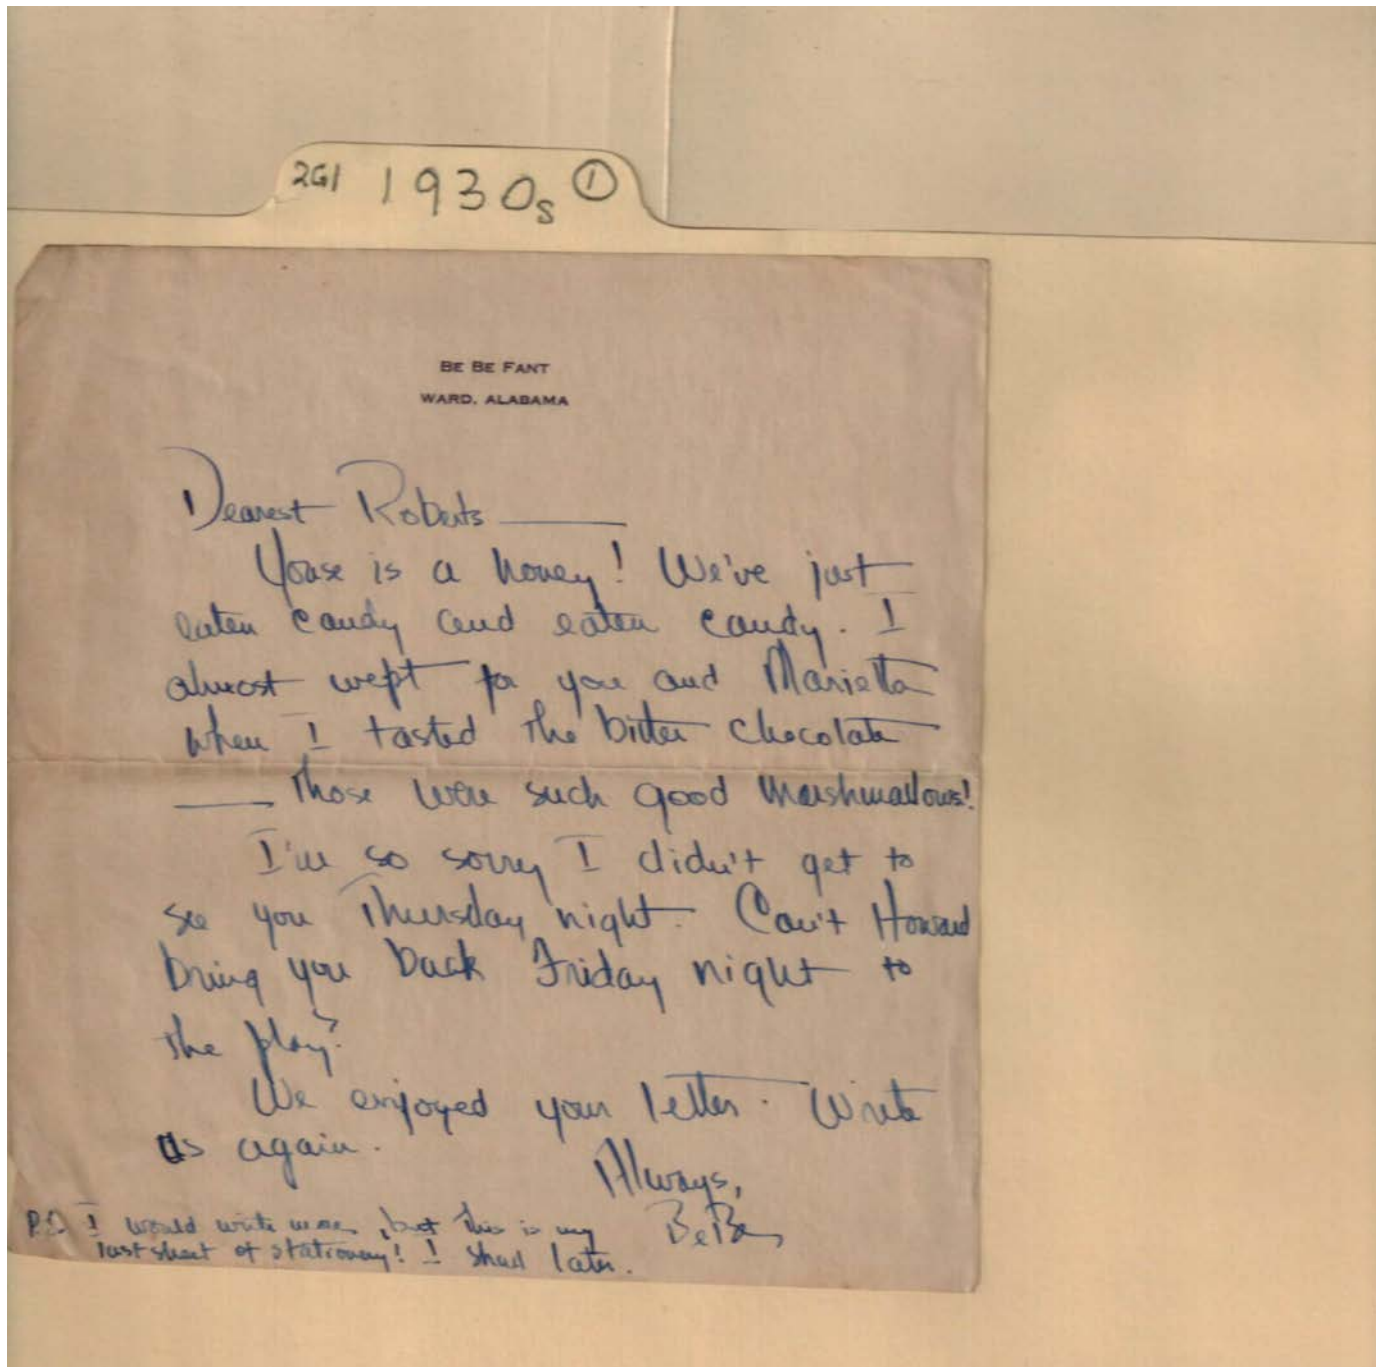 2G1 1930s ①
BE BE FANT
WARD, ALABAMA
Dearest Roberts —
Youse is a honey! We've just
eaten candy and eaten candy. I
almost wept for you and Marietta
when I tasted the bitter chocolate
— Those were such good marshmallows!
I'm so sorry I didn't get to
see you Thursday night. Can't Howard
bring you back Friday night to
the play?
We enjoyed your letter. Write
us again.
Always,
BeBe
P.S. I would write more, but this is my
last sheet of stationery! I shall later.